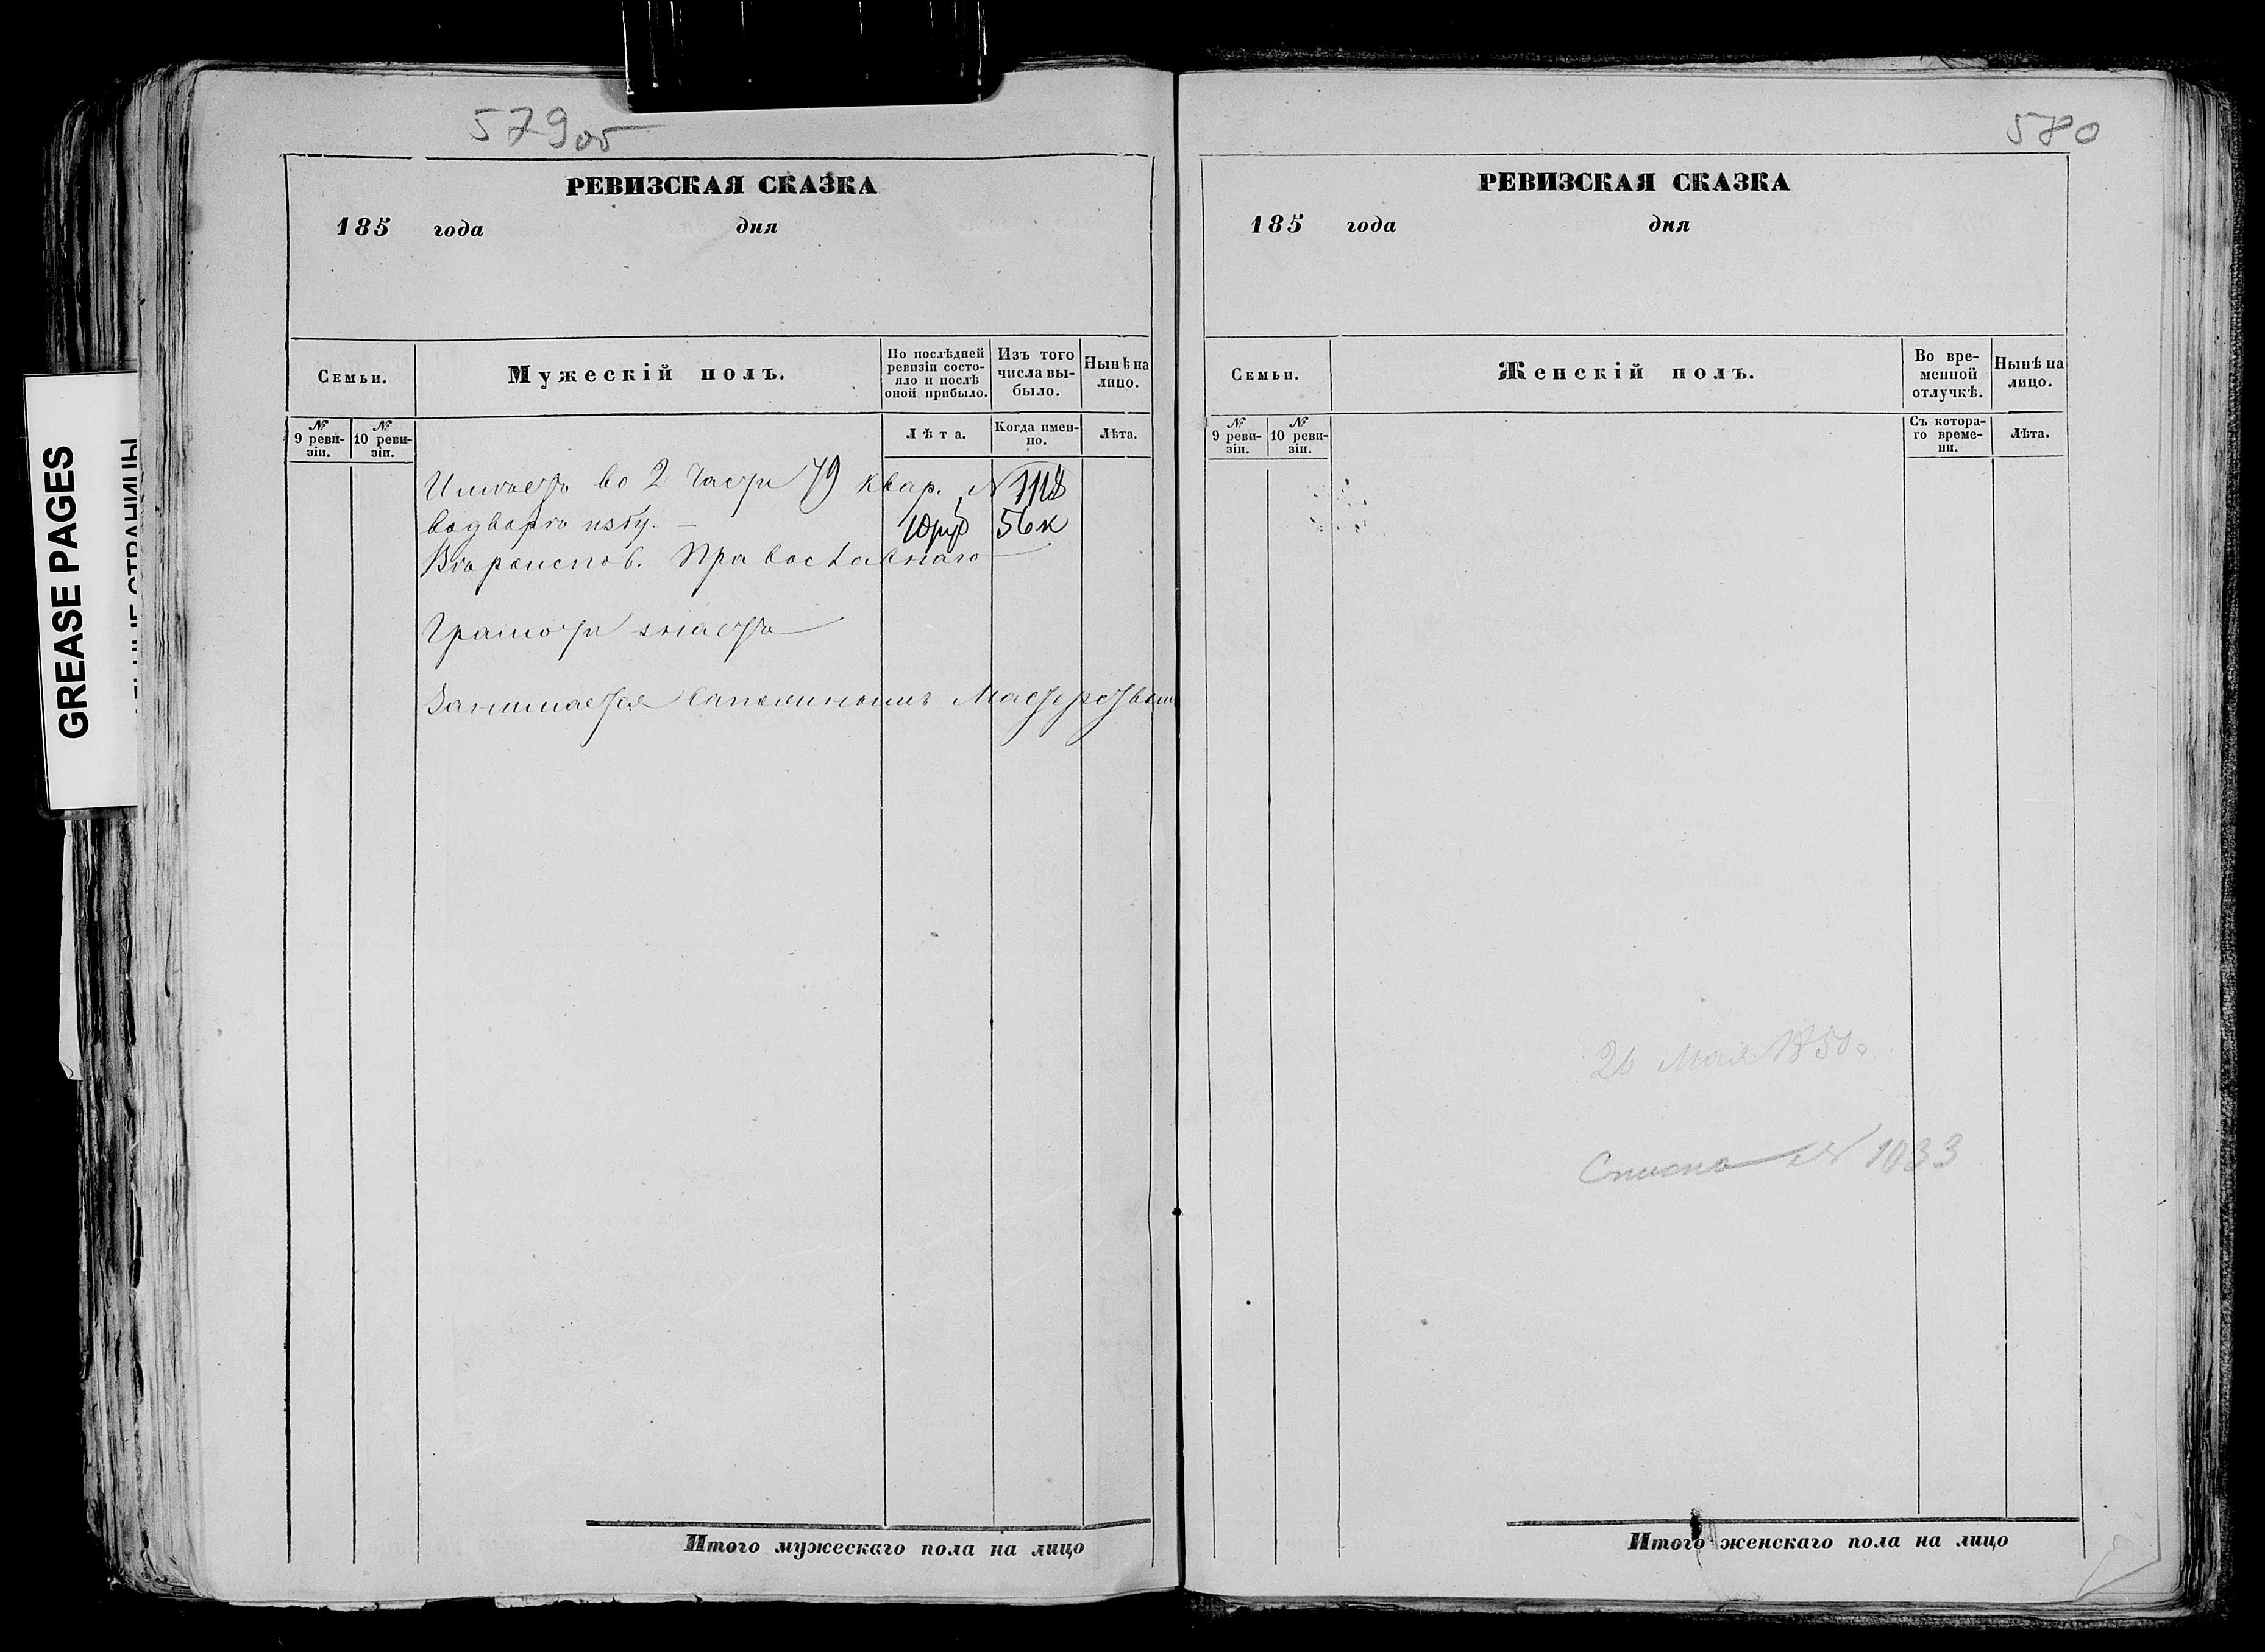 579об
РЕВИЗСКАЯ СКАЗКА
185 года дня
Семьи.
Мужескій полъ.
По послѣдней ревизіи состояло и послѣ оной прибыло.
Изъ того числа выбыло.
Нынѣ на лицо.
№ 9 ревизіи.
№ 10 ревизіи.
Лѣта.
Когда именно.
Лѣта.
Имѣетъ во 2 части 79 квар. N 1118
избу. — 10руб 56к
Православнаго
Грамоти знаетъ
Занимается Сапожнымъ Мастерствомъ
Итого мужескаго пола на лицо
580
РЕВИЗСКАЯ СКАЗКА
185 года дня
Семьи.
Женскій полъ.
Во временной отлучкѣ.
Нынѣ на лицо.
№ 9 ревизіи.
№ 10 ревизіи.
Съ котораго времени.
Лѣта.
Мая 1850
N 1033
Итого женскаго пола на лицо
GREASE PAGES